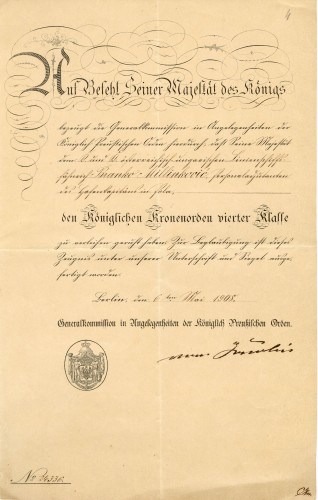 4
Auf Befehl Seiner Majestät des Königs
bezeugt die Generalkommission in Angelegenheiten der
Königlich Preußischen Orden hierdurch, daß Seine Majestät
dem K. und K. österreichisch-ungarischen Linienschiffs-
fähnrich Branko Millinković, Personaladjutanten
des Hafenkapitäns in Pola,
den Königlichen Kronenorden vierter Klasse
zu verleihen geruht haben. Zur Beglaubigung ist dieses
Zeugnis unter unserer Unterschrift und Siegel ausge-
fertigt worden.
Berlin, den 6ten Mai 1908.
Generalkommission in Angelegenheiten der Königlich Preußischen Orden.
No